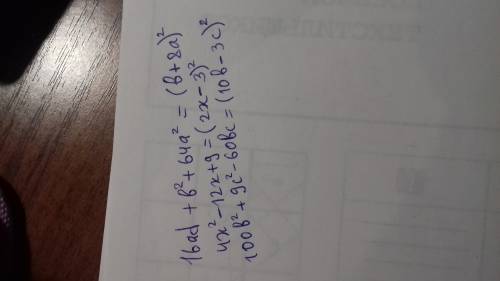 16ad + в² + 64a² = (в + 8a)²
4x² - 12x + 9 = (2x - 3)²
100в² + 9c² - 60вc = (10в - 3c)²